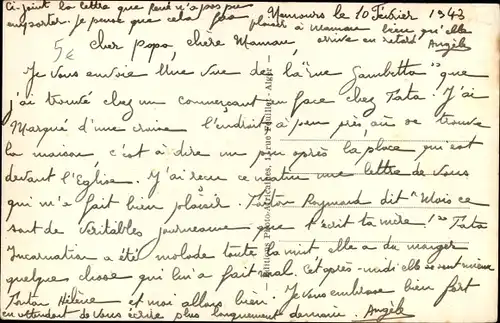 Ci-joint la lettre que René n'a pas pu
emporter. Je pense que cela fera plaisir à Maman bien qu'elle
arrive en retard Angèle
Nemours le 10 Février 1943
5€
Cher Papa, chère Maman,
Je vous envoie une vue de la "rue Gambetta" que
j'ai trouvé chez un commerçant en face chez Tata. J'ai
Marqué d'une croix l'endroit à peu près, où se trouve
la maison, c'est à dire un peu après la place qui est
devant l'Eglise. J'ai reçu ce matin une lettre de vous
qui m'a fait bien plaisir. Tonton Raymond dit "Mais ce
sont de véritables journeaux que t'écrit ta mère!" Tata
Incarnation a été malade toute la nuit elle a du manger
quelque chose qui lui a fait mal. Cet après-midi elle se sent mieux
Tantan Hélène et moi allons bien. Je vous embrasse bien fort
en attendant de vous écrire plus longuement demain. Angèle
Editions Africaines, rue Feuillet - Alger